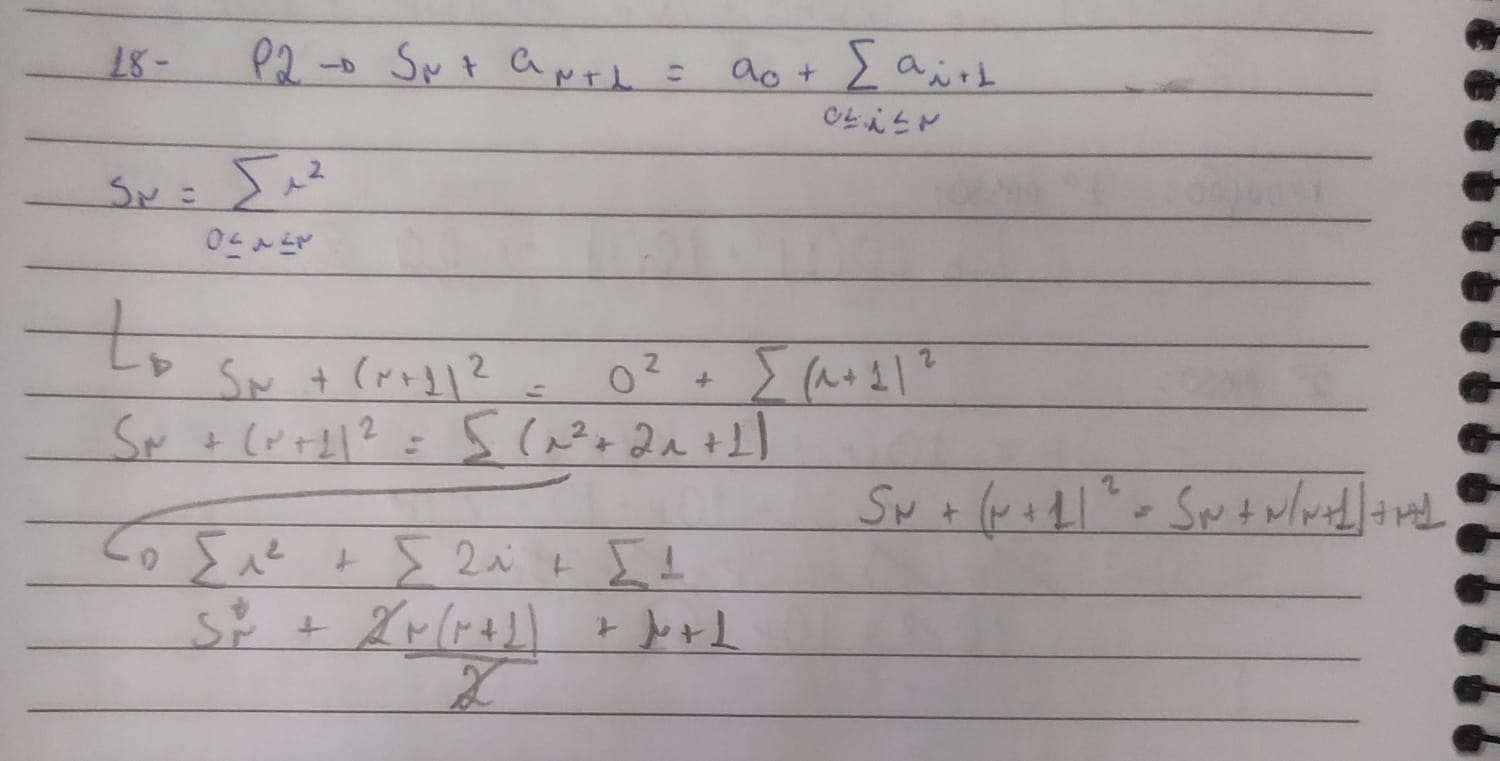 18- P2 → Sn + an+1 = a0 + ∑ ai+1
0≤i≤n
Sn = ∑ i²
0≤i≤n
↳ Sn + (n+1)² = 0² + ∑ (i+1)²
Sn + (n+1)² = ∑ (i² + 2i + 1)
Sn + (n+1)² = Sn + n(n+1) + n+1
↳ ∑ i² + ∑ 2i + ∑ 1
Sn + 2n(n+1) + n+1
2